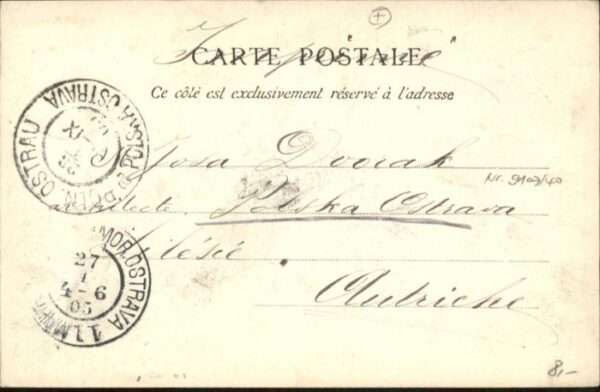 "Imprimé"
CARTE POSTALE
Ce côté est exclusivement réservé à l'adresse
Josa Dvorak
Nr. 9103/40
architecte Polska Ostrava
Silésie
Autriche
8,-
POLN. OSTRAU
POLSKÁ OSTRAVA
IX
MOR. OSTRAVA 1
27
1
4-6
05